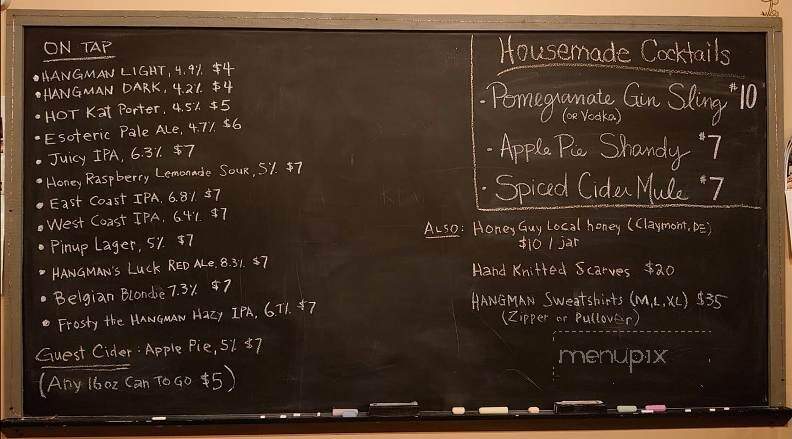 ON TAP
• HANGMAN LIGHT, 4.9% $4
• HANGMAN DARK, 4.2% $4
• HOT Kat Porter, 4.5% $5
• Esoteric Pale Ale, 4.7% $6
• Juicy IPA, 6.3% $7
• Honey Raspberry Lemonade Sour, 5% $7
• East Coast IPA, 6.8% $7
• West Coast IPA, 6.4% $7
• Pinup Lager, 5% $7
• HANGMAN'S Luck RED Ale, 8.3% $7
• Belgian Blonde 7.3% $7
• Frosty the HANGMAN HAZY IPA, 6.7% $7
Guest Cider: Apple Pie, 5% $7
(Any 16oz Can To Go $5)
Housemade Cocktails
· Pomegranate Gin Sling $10
(OR Vodka)
· Apple Pie Shandy $7
· Spiced Cider Mule $7
ALSO: Honey Guy Local honey (Claymont, DE)
$10 / jar
Hand Knitted Scarves $20
HANGMAN Sweatshirts (M, L, XL) $35
(Zipper or Pullover)
menupix